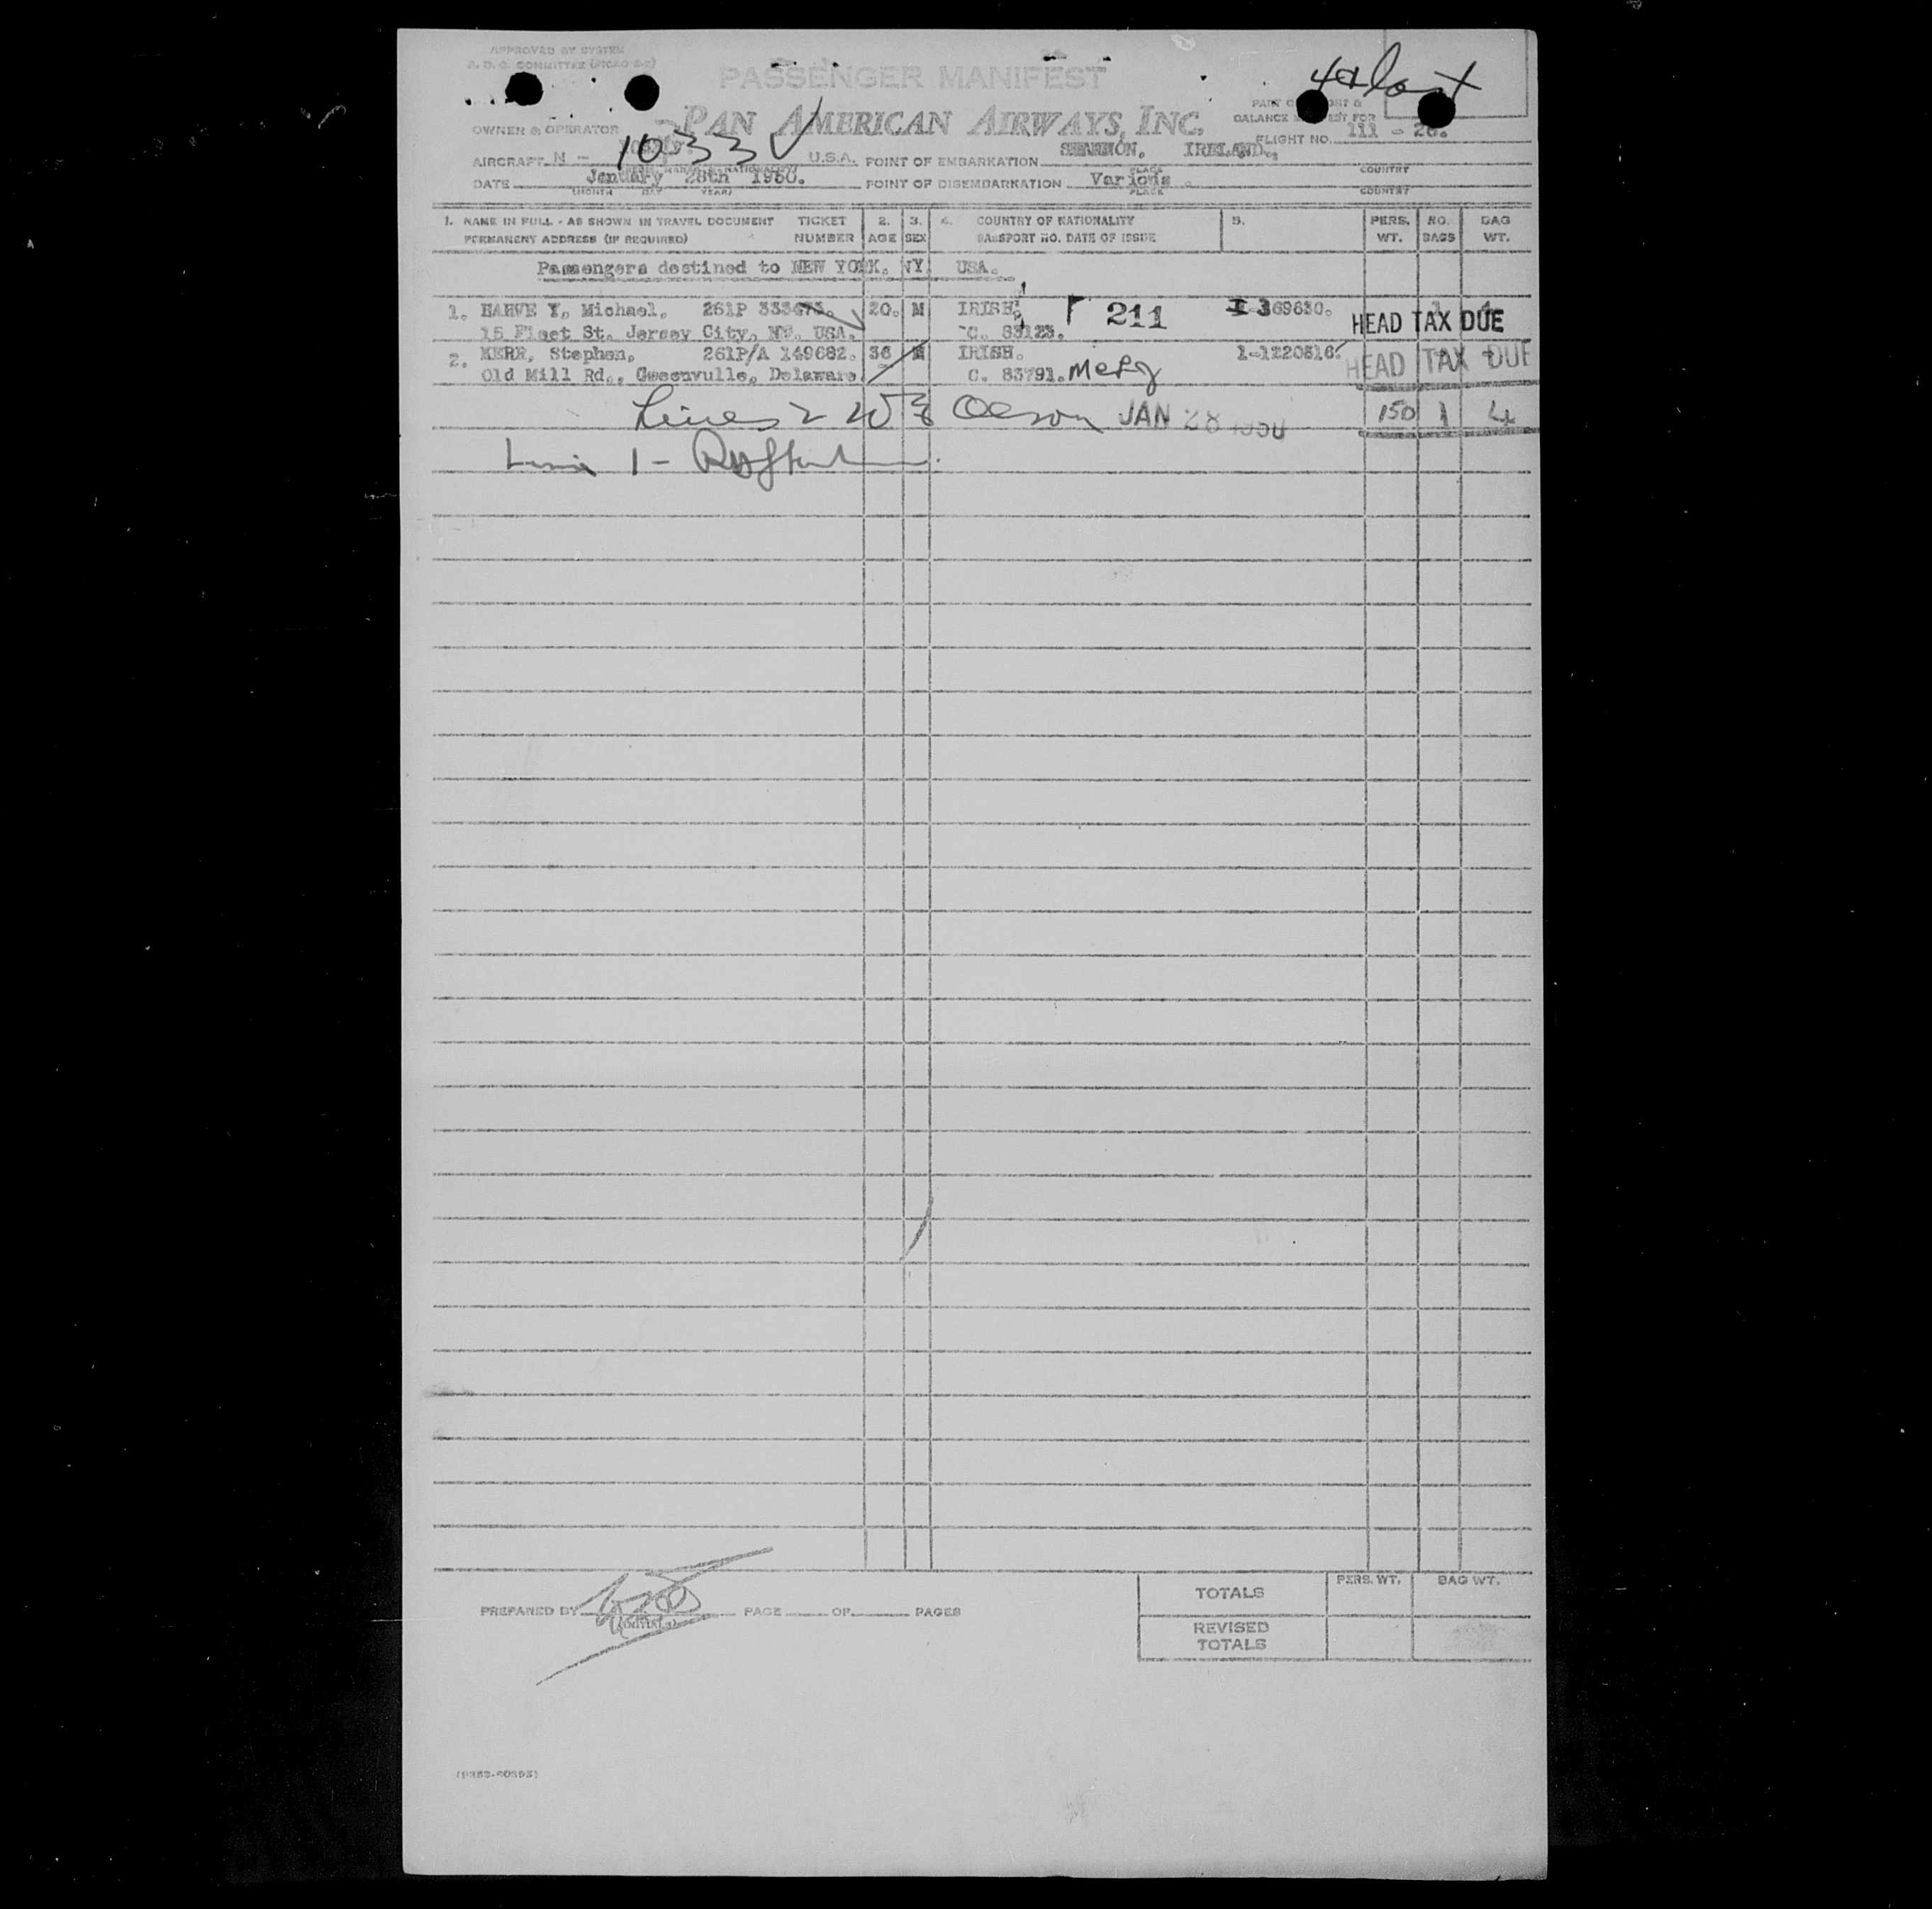 APPROVED BY SYSTEM
A. D. C. COMMITTEE
PASSENGER MANIFEST
4 & last
PAN AMERICAN AIRWAYS, INC.
OWNER & OPERATOR
FLIGHT NO. 111 - 26.
AIRCRAFT N - 1033 V U.S.A. POINT OF EMBARKATION SHANNON, IRELAND.
PLACE COUNTRY
DATE January 28th 1950. POINT OF DISEMBARKATION Various.
(MONTH DAY YEAR) PLACE COUNTRY
1. NAME IN FULL - AS SHOWN IN TRAVEL DOCUMENT TICKET 2. 3. 4. COUNTRY OF NATIONALITY 5. PERS. NO. BAG
PERMANENT ADDRESS (IF REQUIRED) NUMBER AGE SEX PASSPORT NO. DATE OF ISSUE WT. BAGS WT.
Passengers destined to NEW YORK. NY. USA.
1. HARVE Y, Michael. 261P 333473. 20. M IRISH. 211 I 369630.
15 Fleet St. Jersey City, USA. C. 83123. HEAD TAX DUE
2. KERR, Stephen, 261P/A 149682. 36 M IRISH. 1-1220516.
Old Mill Rd., Gweenvulle, Delaware. C. 83791. HEAD TAX DUE
Lines 2 Olson JAN 28 1950 150 1 4
Line 1 -
PREPARED BY PAGE OF PAGES
TOTALS PERS. WT. BAG WT.
REVISED
TOTALS